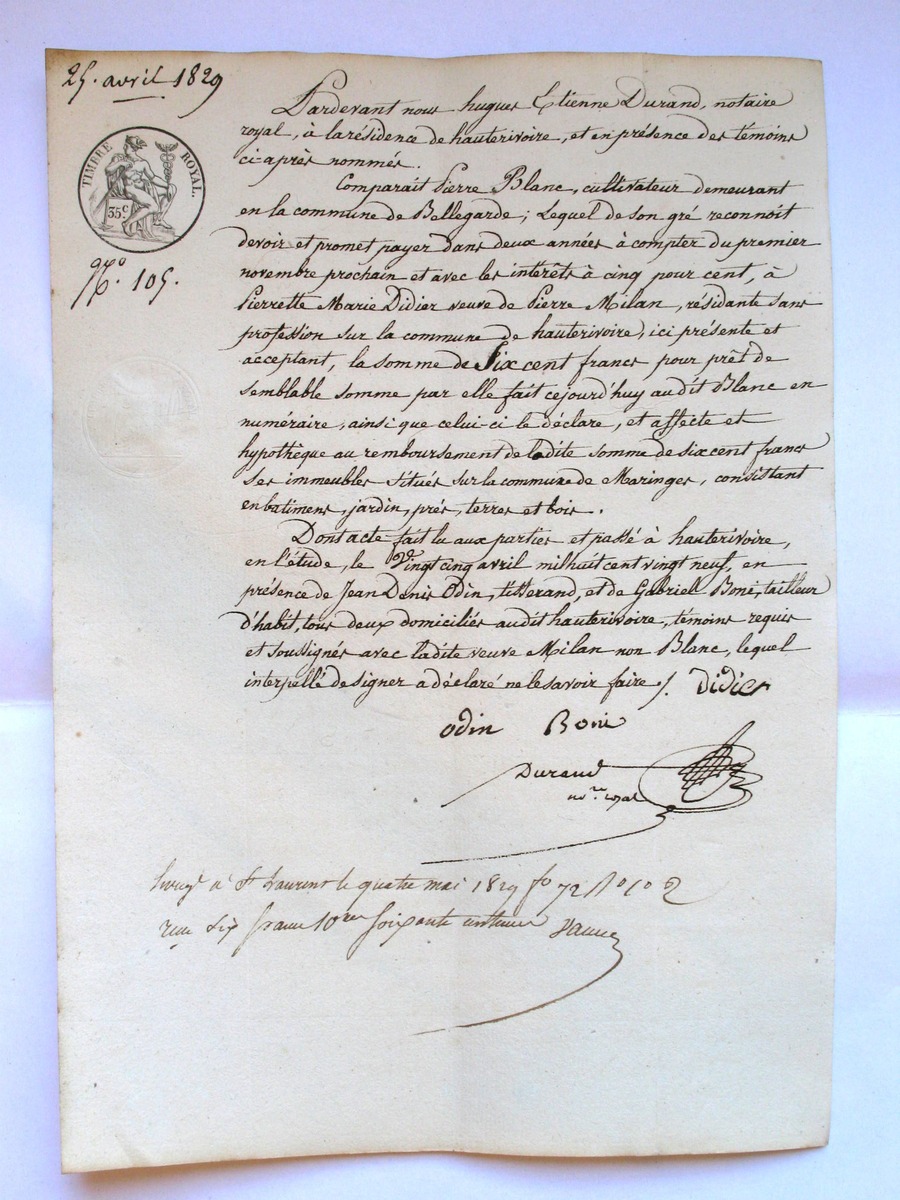 25. avril 1829
TIMBRE ROYAL.
35 C
N.o 105.
Pardevant nous hugues Etienne Durand, notaire
royal, à la résidence de hauterivoire, et en présence des témoins
ci-après nommés.
Comparait Pierre Blanc, cultivateur demeurant
en la commune de Bellegarde; Lequel de son gré reconnoit
devoir et promet payer dans deux années à compter du premier
novembre prochain et avec les intérêts à cinq pour cent, à
Pierrette Marie Didier veuve de Pierre Milan, résidante sans
profession sur la commune de hauterivoire, ici présente et
acceptant, la somme de Six cent francs pour prêt de
semblable somme par elle fait cejourd'huy audit Blanc en
numéraire, ainsi que celui-ci le déclare, et affecte et
hypothèque au remboursement de ladite somme de six cent francs
Ses immeubles situés sur la commune de Maringes, consistant
en batimens, jardin, prés, terres et bois.
Dont acte fait lu aux parties et passé à hauterivoire,
en l'étude, le Vingt cinq avril mil huit cent vingt neuf, en
présence de Jean Denis Odin, tisserand, et de Gabriel Boné, tailleur
d'habit, tous deux domiciliés audit hauterivoire, témoins requis
et soussignés avec ladite veuve Milan non Blanc, lequel
interpellé de signer a déclaré ne le savoir faire /. Didier
odin Boné
Durand
no.re royal
à St Laurent le quatre mai 1829 fo 72
six francs soixante centimes